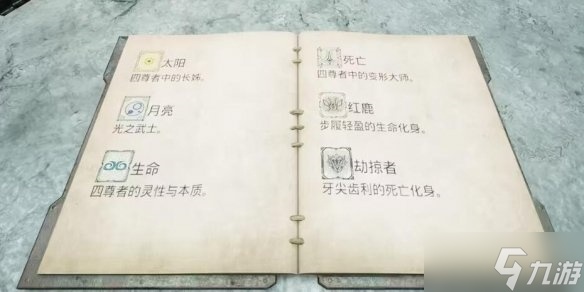 太阳
四尊者中的长姊。
月亮
光之武士。
生命
四尊者的灵性与本质。
死亡
四尊者中的变形大师。
红鹿
步履轻盈的生命化身。
劫掠者
牙尖齿利的死亡化身。
九游